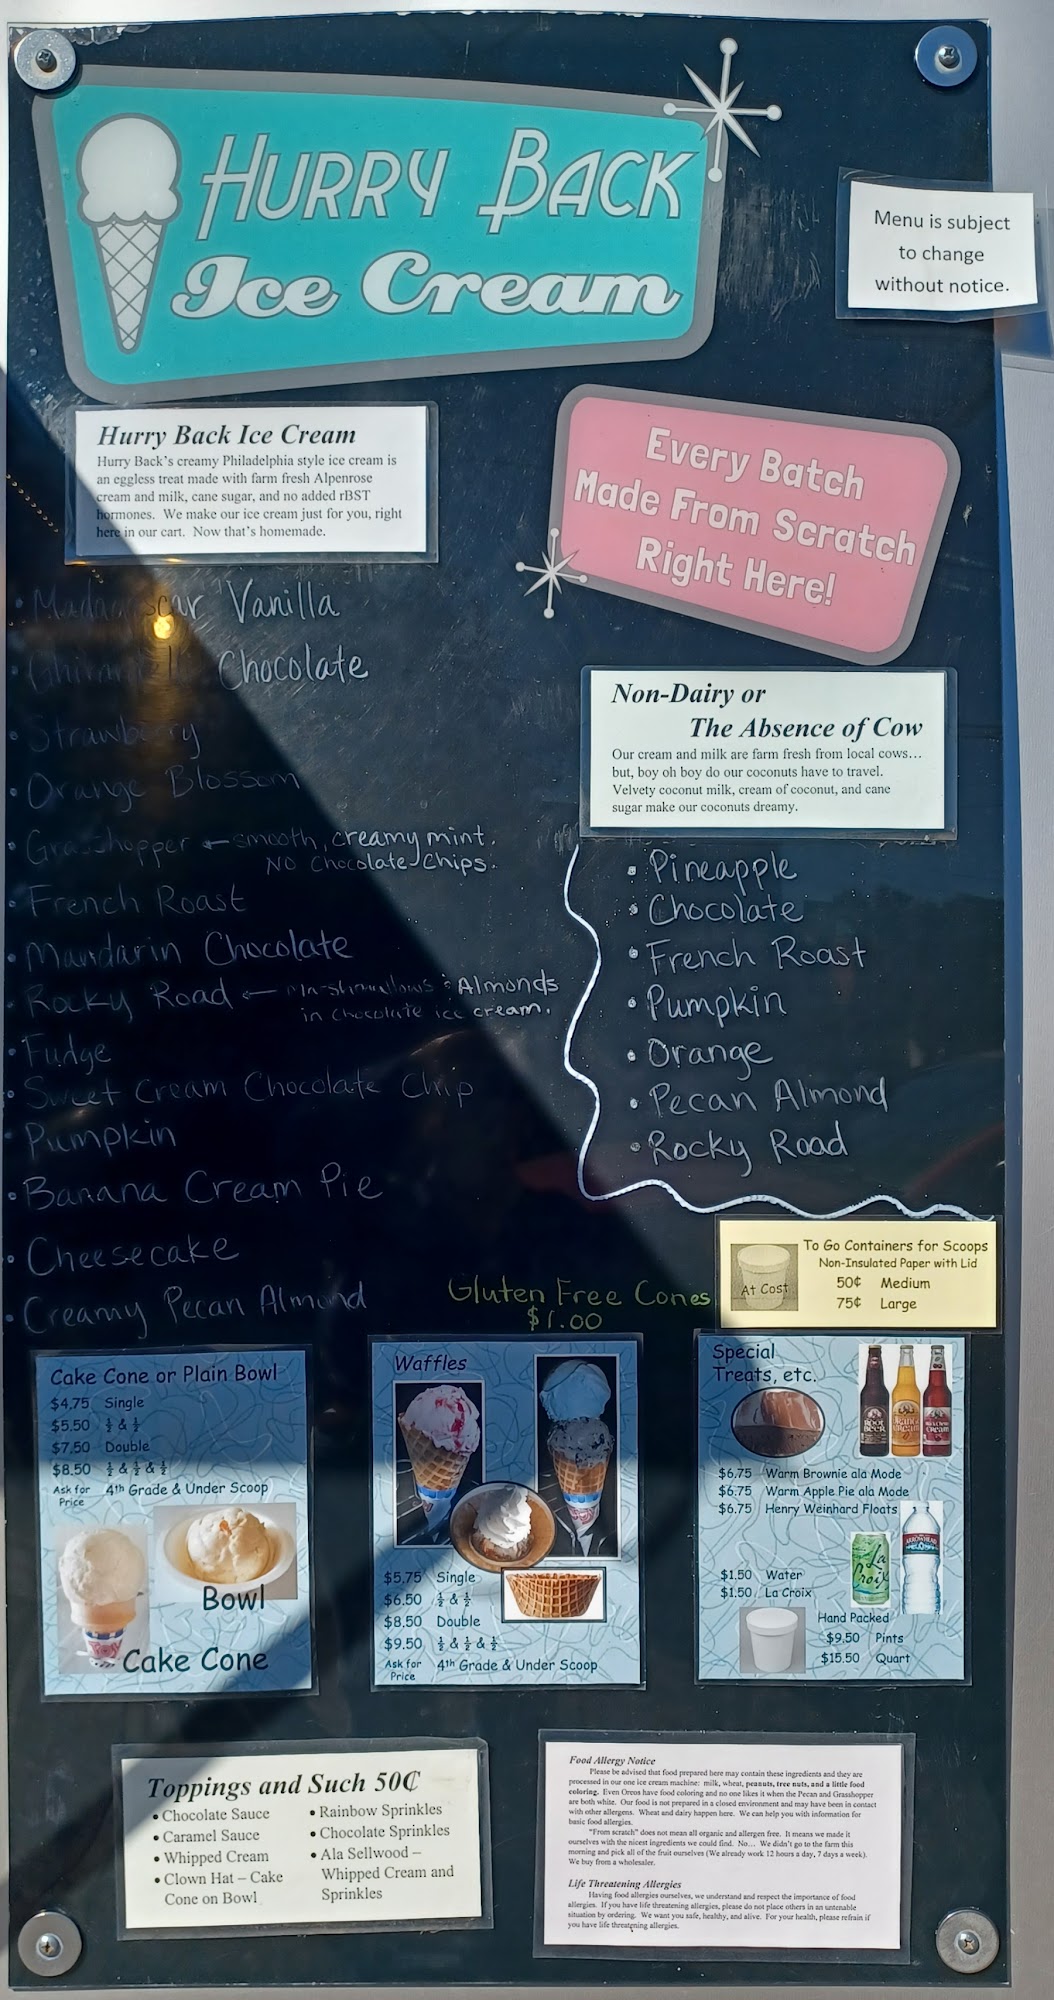 HURRY BACK
Ice Cream
Menu is subject
to change
without notice.
Hurry Back Ice Cream
Hurry Back's creamy Philadelphia style ice cream is
an eggless treat made with farm fresh Alpenrose
cream and milk, cane sugar, and no added rBST
hormones. We make our ice cream just for you, right
here in our cart. Now that's homemade.
Every Batch
Made From Scratch
Right Here!
• Madagascar Vanilla
• Ghirardelli Chocolate
• Strawberry
• Orange Blossom
• Grasshopper ← smooth, creamy mint.
NO Chocolate Chips.
• French Roast
• Mandarin Chocolate
• Rocky Road ← Marshmallows & Almonds
in chocolate ice cream.
• Fudge
• Sweet Cream Chocolate Chip
• Pumpkin
• Banana Cream Pie
• Cheesecake
• Creamy Pecan Almond
Non-Dairy or
The Absence of Cow
Our cream and milk are farm fresh from local cows...
but, boy oh boy do our coconuts have to travel.
Velvety coconut milk, cream of coconut, and cane
sugar make our coconuts dreamy.
• Pineapple
• Chocolate
• French Roast
• Pumpkin
• Orange
• Pecan Almond
• Rocky Road
At Cost
To Go Containers for Scoops
Non-Insulated Paper with Lid
50¢ Medium
75¢ Large
Gluten Free Cones
$1.00
Cake Cone or Plain Bowl
$4.75 Single
$5.50 ½ & ½
$7.50 Double
$8.50 ½ & ½ & ½
Ask for Price 4th Grade & Under Scoop
Bowl
Cake Cone
Waffles
$5.75 Single
$6.50 ½ & ½
$8.50 Double
$9.50 ½ & ½ & ½
Ask for Price 4th Grade & Under Scoop
Special
Treats, etc.
ROOT BEER
ORANGE CREAM
Black Cherry CREAM
$6.75 Warm Brownie ala Mode
$6.75 Warm Apple Pie ala Mode
$6.75 Henry Weinhard Floats
ARROWHEAD
La Croix
$1.50 Water
$1.50 La Croix
Hand Packed
$9.50 Pints
$15.50 Quart
Toppings and Such 50₵
• Chocolate Sauce
• Caramel Sauce
• Whipped Cream
• Clown Hat – Cake
Cone on Bowl
• Rainbow Sprinkles
• Chocolate Sprinkles
• Ala Sellwood –
Whipped Cream and
Sprinkles
Food Allergy Notice
Please be advised that food prepared here may contain these ingredients and they are
processed in our one ice cream machine: milk, wheat, peanuts, tree nuts, and a little food
coloring. Even Oreos have food coloring and no one likes it when the Pecan and Grasshopper
are both white. Our food is not prepared in a closed environment and may have been in contact
with other allergens. Wheat and dairy happen here. We can help you with information for
basic food allergies.
"From scratch" does not mean all organic and allergen free. It means we made it
ourselves with the nicest ingredients we could find. No... We didn't go to the farm this
morning and pick all of the fruit ourselves (We already work 12 hours a day, 7 days a week).
We buy from a wholesaler.
Life Threatening Allergies
Having food allergies ourselves, we understand and respect the importance of food
allergies. If you have life threatening allergies, please do not place others in an untenable
situation by ordering. We want you safe, healthy, and alive. For your health, please refrain if
you have life threatening allergies.